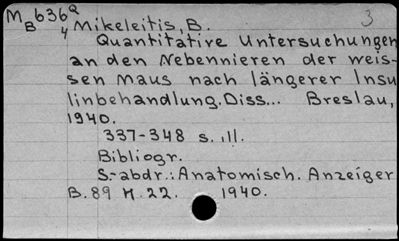 M B 636 Q 4 Mikeleitis, B. 3
Quantitative Untersuchungen
an den Nebennieren der weis-
sen Maus nach längerer Insu
linbehandlung. Diss... Breslau,
1940.
337-348 s. ill.
Bibliogr.
S.-abdr.: Anatomisch. Anzeiger
B. 89 H. 22. 1940.